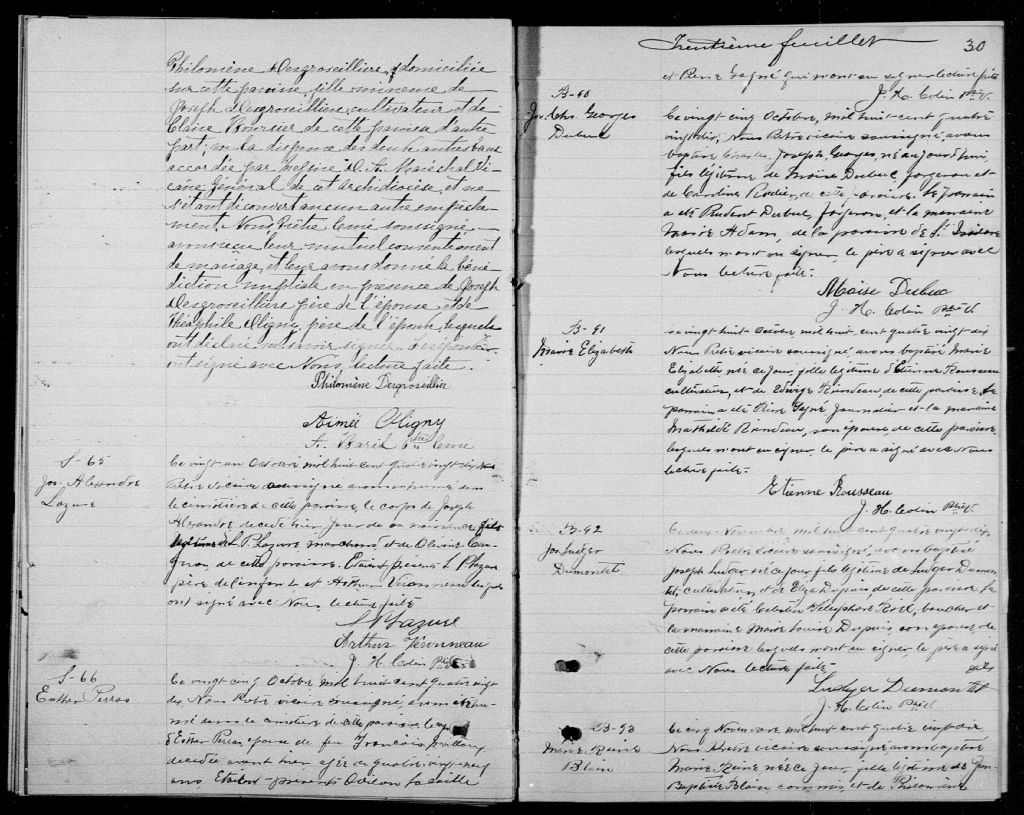 Philomène Desgroseilliers, domiciliée
sur cette paroisse, fille mineure de
Joseph Desgroseilliers, cultivateur et de
Claire Boursier de cette paroisse d'autre
part; vu la dispense des deux autres bans
accordée par Messire L. A. Maréchal Vi-
caire Général de cet Archidiocèse, et ne
s'étant découvert aucun autre empêche-
ment, Nous Prêtre Curé soussigné
avons reçu leur mutuel consentement
de mariage, et leur avons donné la béné-
diction nuptiale en présence de Joseph
Desgroseilliers père de l'épouse et de
Théophile Oligny, père de l'époux lesquels
ont déclaré ne savoir signer. Les époux
ont signé avec Nous, lecture faite.
Philomène Desgroseillier
Aimée Oligny
A. Baril Ptre Curé
S-65
Jos. Alexandre
Lazure
Le vingt un Octobre mil huit cent quatre vingt dix Nous
Prêtre vicaire soussigné avons inhumé dans
le cimetière de cette paroisse, le corps de Joseph
Alexandre décédé hier jour de sa naissance fils
légitime de L. P. Lazure marchand et de Olivine
de cette paroisse. Étaient présents L. P. Lazure
père de l'enfant et Arthur lesquels
ont signé avec Nous lecture faite
L P Lazure
Arthur
J. H. Colin Ptre V.
S-66
Esther Perras
Le vingt cinq Octobre mil huit cent quatre vingt
dix Nous Prêtre vicaire soussigné, avons inhu-
mé dans le cimetière de cette paroisse le corps
d'Esther Perras épouse de feu François
décédée avant hier agée de quatre vingt
ans. Étaient présents Odilon
Trentième feuillet
30
et Pierre Gagné qui n'ont su signer lecture faite
J. H. Colin Ptre V.
B-90
Jos. Chs. Georges
Dubuc
Le vingt cinq Octobre, mil huit cent quatre
vingt dix, Nous Prêtre vicaire soussigné, avons
baptisé Charles Joseph Georges, né aujourd'hui,
fils légitime de Moïse Dubuc forgeron et
de Caroline Rodier, de cette paroisse. Le parrain
a été Prudent Dubuc, forgeron, et la marraine
Marie Adam, de la paroisse de St. Isidore
lesquels n'ont su signer, le père a signé avec
Nous lecture faite.
Moïse Dubuc
J. H. Colin Ptre V.
B-91
Marie Elizabeth
Le vingt huit Octobre mil huit cent quatre vingt dix
Nous Prêtre vicaire soussigné avons baptisé Marie
Elizabeth née ce jour, fille légitime d'Etienne Rousseau
cultivateur, et de Edwige Riendeau, de cette paroisse. Le
parrain a été Pierre Gagné Journalier et la marraine
Mathilde Riendeau, son épouse, de cette paroisse,
lesquels n'ont su signer, le père a signé avec Nous
lecture faite.
Etienne Rousseau
J. H. Colin Ptre V.
B-92
Jos. Ludger
Dumontet
Le deux Novembre mil huit cent quatre vingt dix
Nous Prêtre Vicaire soussigné, avons baptisé
Joseph Ludger né ce jour fils légitime de Ludger Dumon-
tet, cultivateur, et de Eliza Dupuis de cette paroisse. Le
parrain a été Télesphore boucher et
la marraine Marie Louise Dupuis, son épouse, de
cette paroisse lesquels n'ont su signer le père a signé
avec Nous lecture faite.
Ludger Dumontet
J. H. Colin Ptre V.
B-93
Marie Reine
Blain
Le cinq Novembre mil huit cent quatre vingt dix
Nous Prêtre vicaire soussigné avons baptisé
Marie Reine née ce jour, fille légitime de Jean
Baptiste Blain commis, et de Philomène